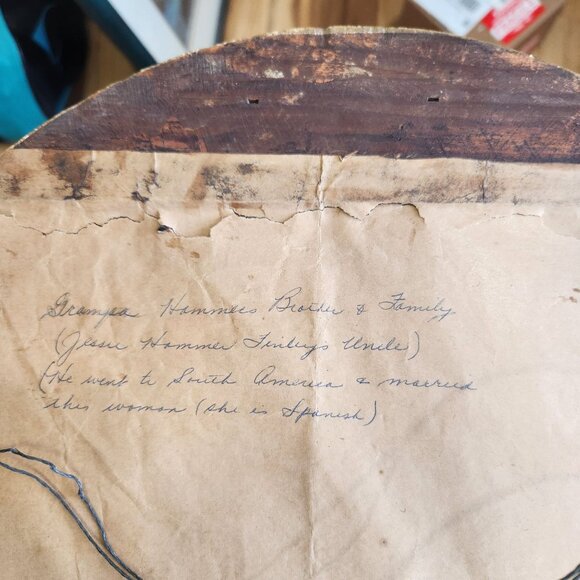 Grampa Hammers Brother & Family
(Jessie Hammer Finleys Uncle)
(He went to South America & married
this woman (she is Spanish)